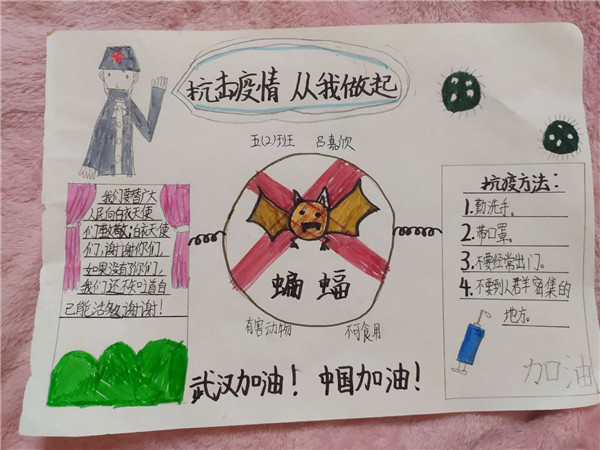 抗击疫情 从我做起
五(2)班 吕嘉欣
我们要替广大
人民向白衣天使
们致敬;白衣天使
们,谢谢你们,
如果没有你们,
我们还不知道自
己能活 谢谢!
蝙蝠
有害动物 不可食用
抗疫方法:
1.勤洗手。
2.带口罩。
3.不要经常出门。
4.不要到人群密集的
地方。
加油
武汉加油! 中国加油!